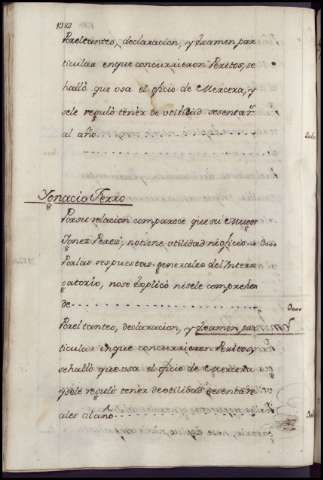 1082
Por el tanteo, declaracion, y examen par
ticular en que concurrieron Peritos, se
halló que usa el oficio de Mercero, y
se le reguló tener de utilidad sesenta r.^s
al año
Ygnacio Ferro
Por su relacion comparece que su
Ygnez Perez, no tiene utilidad ni oficio
Por las respuestas generales del Inter
rogatorio, no se explicó ni se le comprehen
de
Por el tanteo, declaracion, y examen par
ticular en que concurrieron Peritos,
se halló que usa el oficio de
y se le reguló tener de utilidad
al año